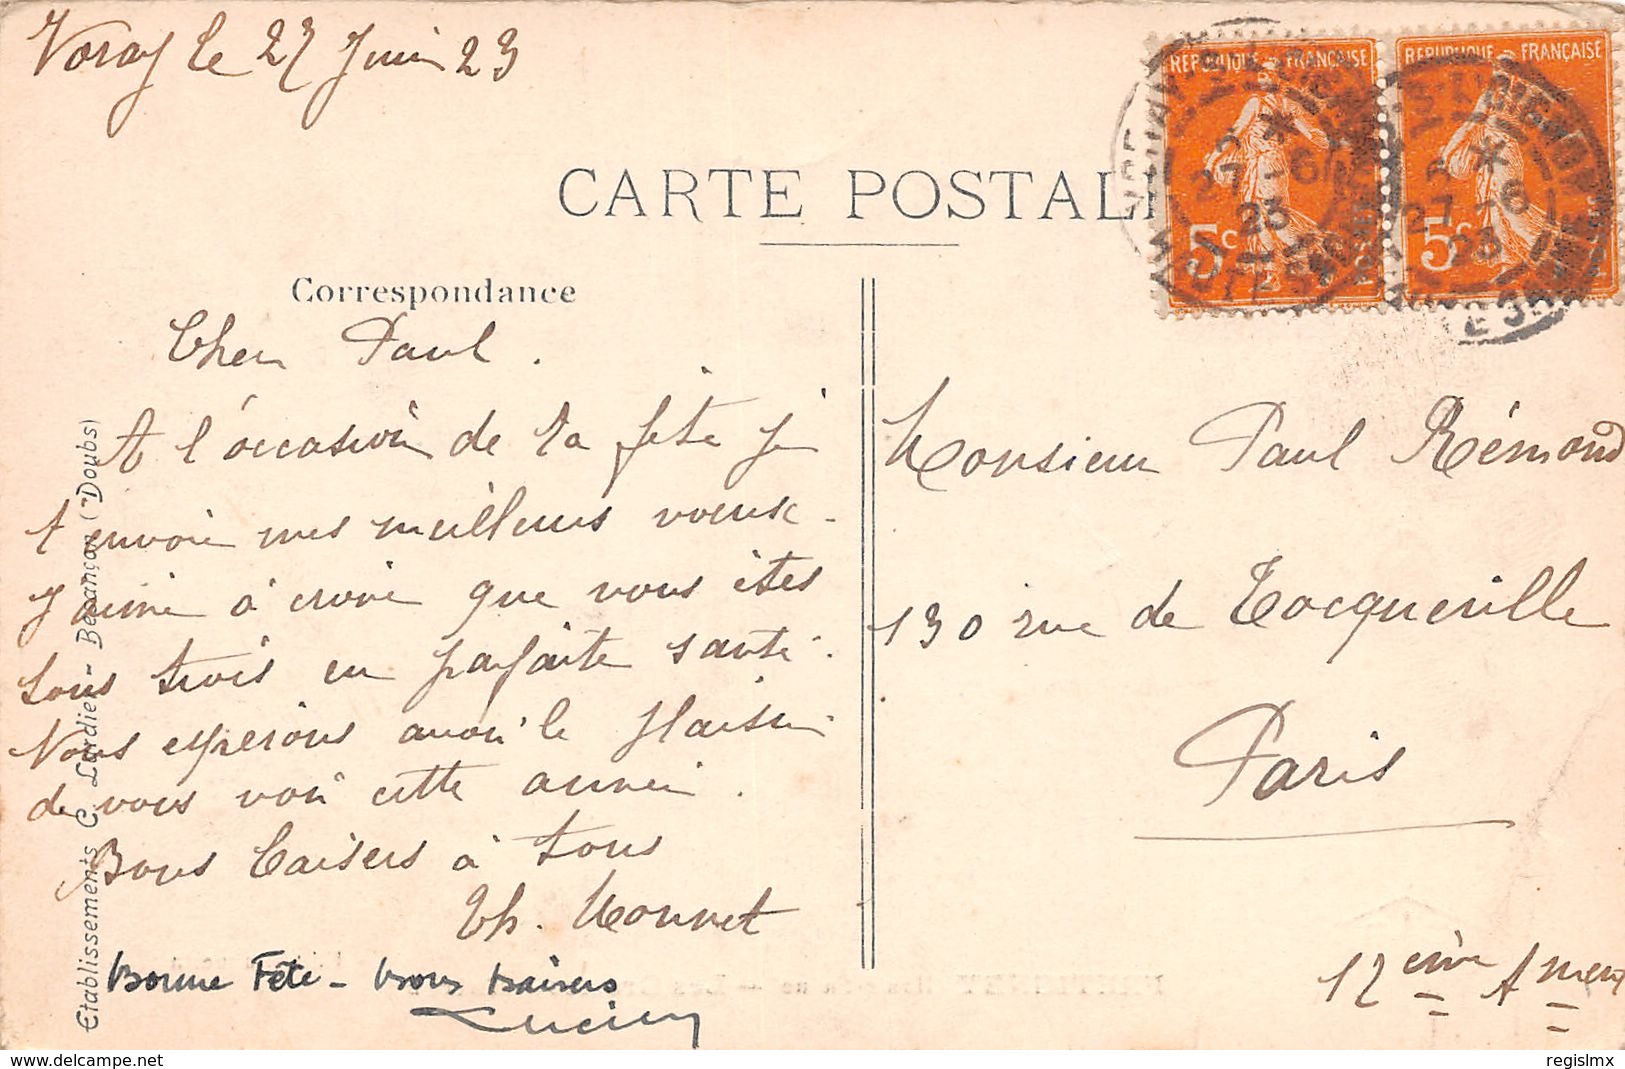 Voray le 27 Juin 23
RÉPUBLIQUE FRANÇAISE
5c
REPUBLIQUE FRANÇAISE
5c
27-6
23
27-6
23
CARTE POSTALE
Correspondance
Cher Paul.
A l'occasion de la fête je
t envoie mes meilleurs voeux.
J'aime à croire que vous êtes
tous trois en parfaite santé.
Nous espérons avoir le plaisir
de vous voir cette année.
Bons baisers à tous
Th. Monnet
Bonne Fête - bons baisers
Lucien
Monsieur Paul Rémond
130 rue de Tocqueville
Paris
17ème Arr
Etablissements C. Lardier - Besançon (Doubs)
www.delcampe.net
regislmx